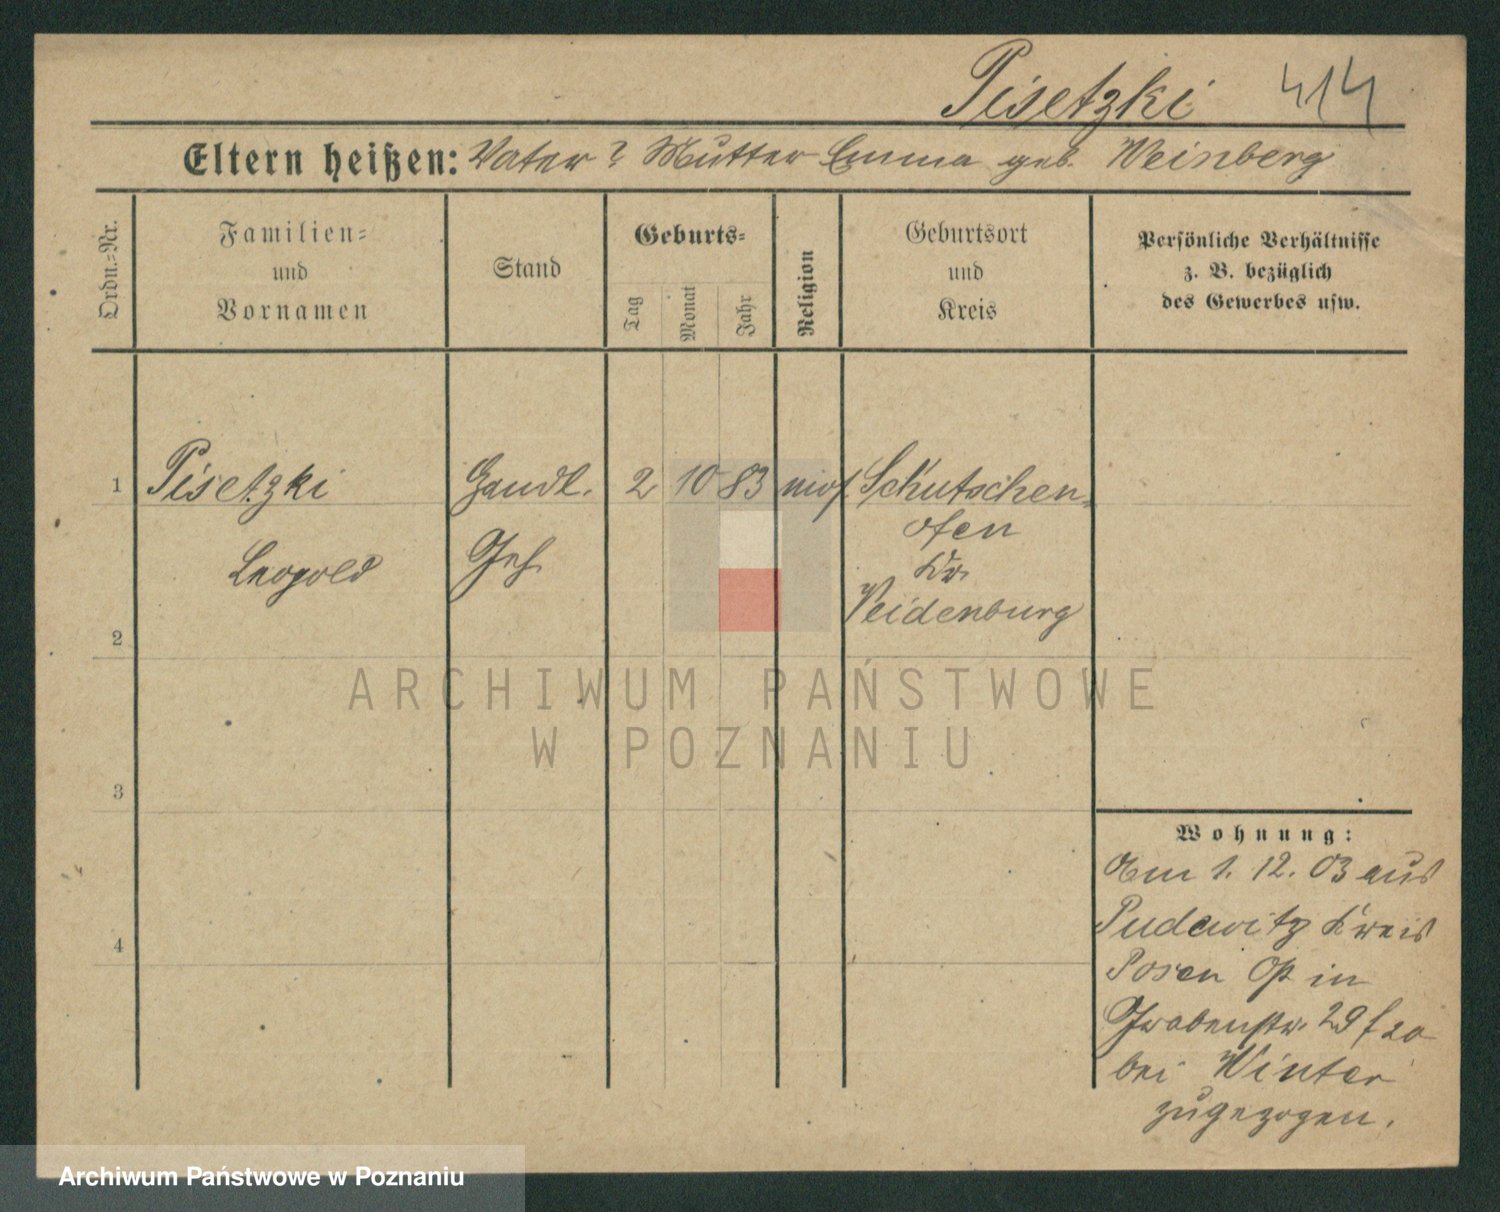 Pisetzki 414
Eltern heißen: Vater? Mutter Emma geb. Weinberg
Ordn.-Nr.
Familien-
und
Vornamen
Stand
Geburts-
Tag
Monat
Jahr
Religion
Geburtsort
und
Kreis
Persönliche Verhältnisse
z. B. bezüglich
des Gewerbes usw.
1 Pisetzki Handl. 2 10 83 mos. Schutschen-
ofen
Leopold Geh. Kr.
Neidenburg
2
3
4
Wohnung:
Am 1. 12. 03 aus
Pudewitz Kreis
Posen Ost in
Grabenstr. 29
bei Winter
zugezogen.
ARCHIWUM PAŃSTWOWE
W POZNANIU
Archiwum Państwowe w Poznaniu